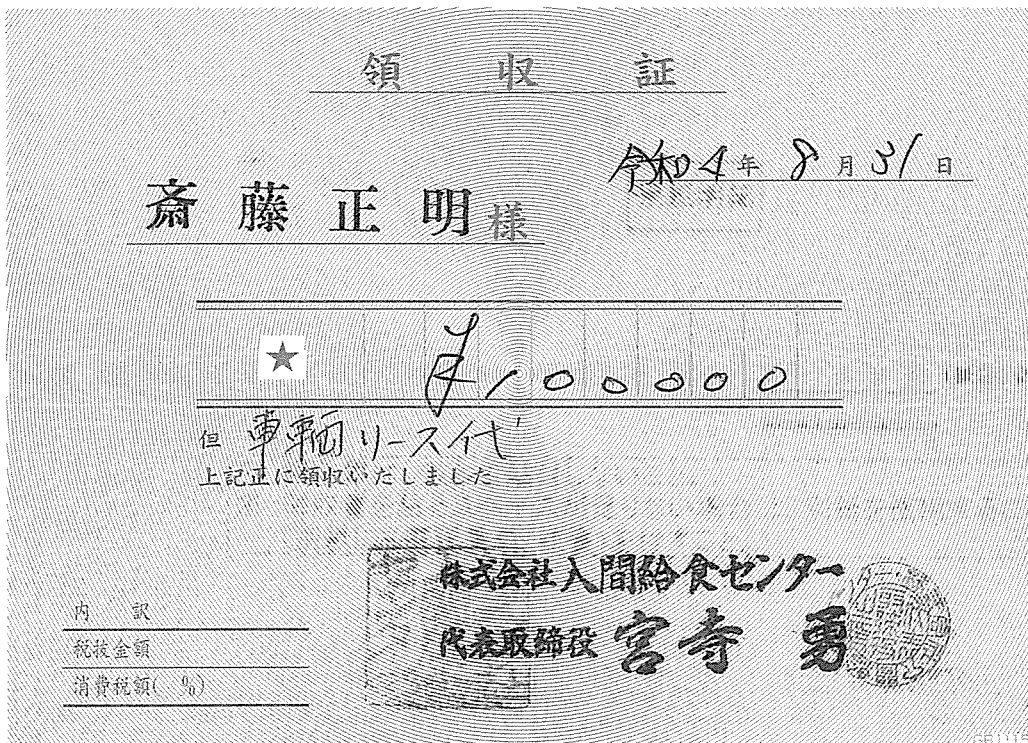 領収証
令和4年8月31日
斎藤正明様
★ ¥100000
但 車輌リース代
上記正に領収いたしました
株式会社入間給食センター
代表取締役 宮寺勇
内訳
税抜金額
消費税額( %)